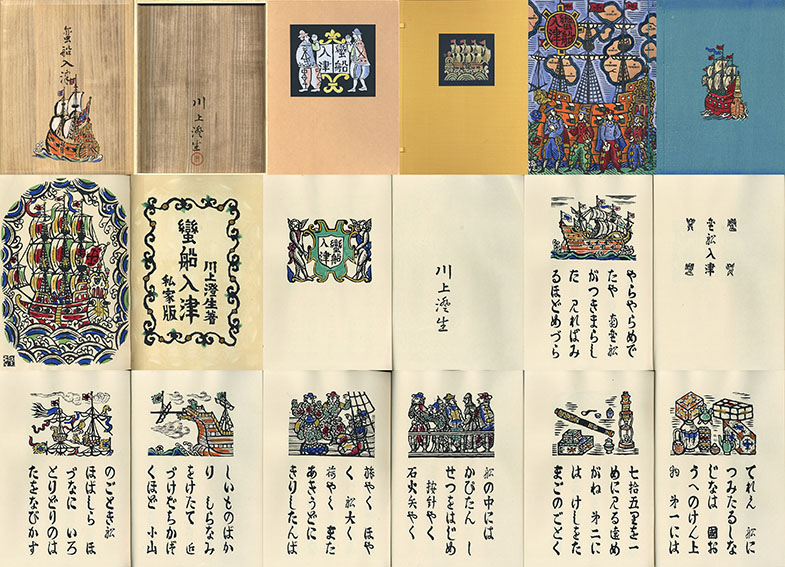 蛮船入津
川上澄生
蠻船
入津
蠻船
入津
川上澄生著
蠻船入津
私家版
蠻船
入津
川上澄生
蛮船入津
やらやらめで
たや 南蛮船
がつきまらし
た 見ればみ
るほどめづら
しいものばか
り しらなみ
をけたて 近
くほど 小山
のごとき船
ほばしら ほ
づなに いろ
とりどりのは
たをなびかす
船の中には
かぴたん し
せつをはじめ
按針やく
石火矢やく
く 船大く
荷やく また
あきうどに
きりしたんば
てれん 船に
つみたるしな
じなは 國お
うへのけん上
物 第一には
七拾五里を一
めに見る遠め
がね 第二に
は けしをた
まごのごとく